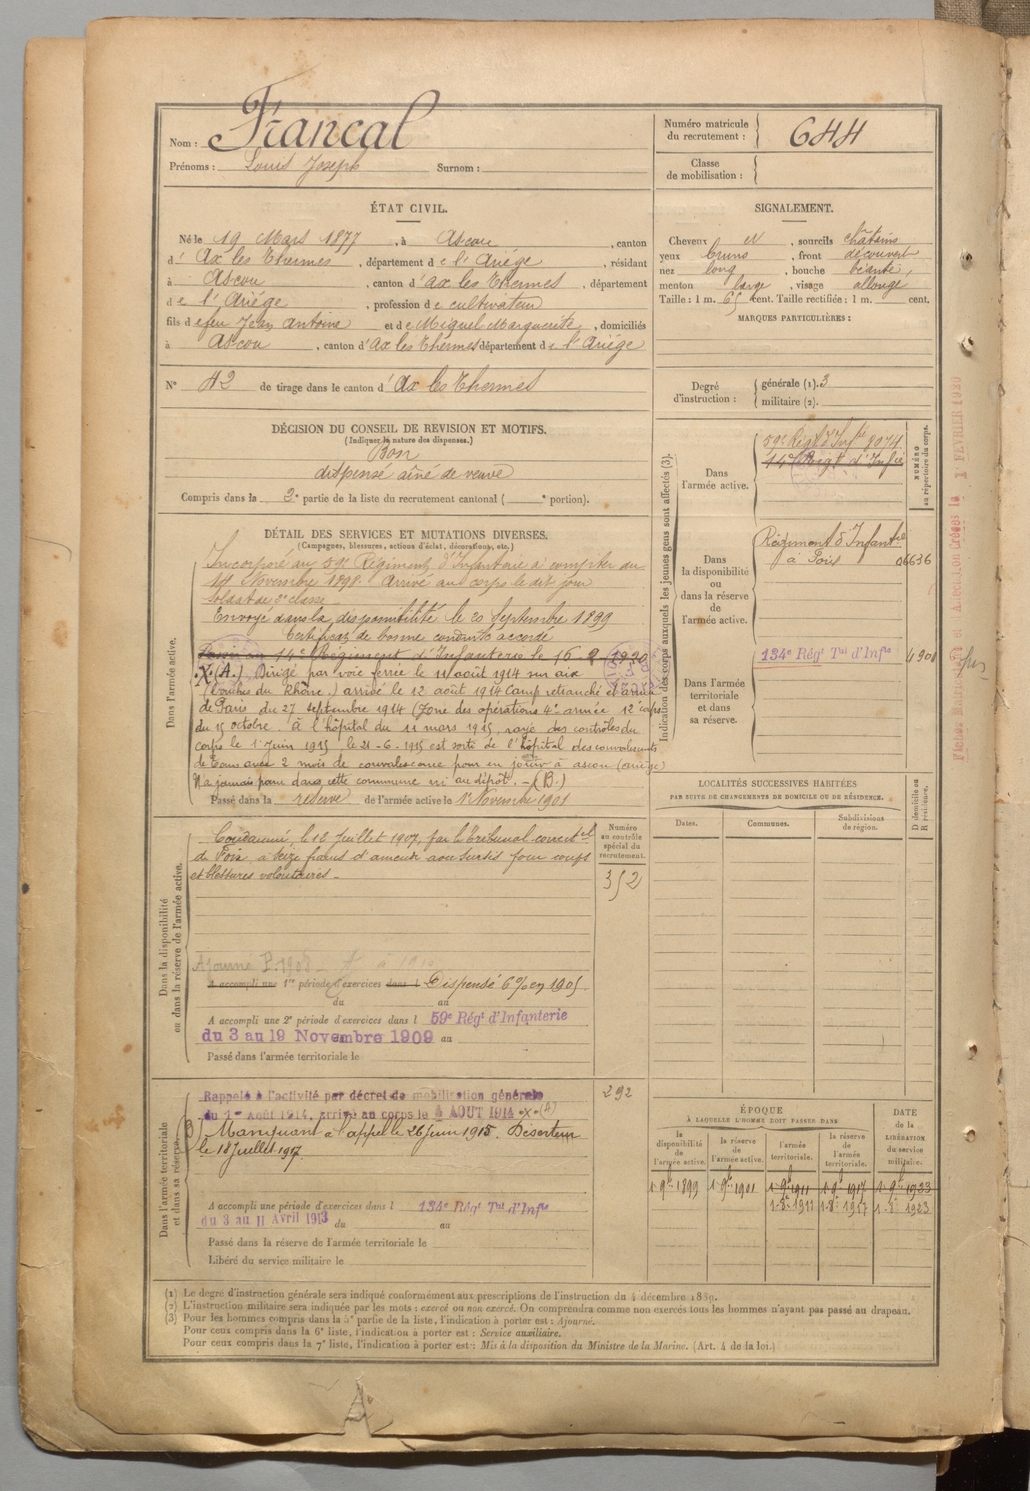 Nom : Francal
Prénoms : Louis Joseph Surnom :
Numéro matricule du recrutement : 644
Classe de mobilisation :
ÉTAT CIVIL.
Né le 19 Mars 1877, à Ascou, canton
d' Ax les Thermes, département de l'Ariége, résidant
à Ascou, canton d'Ax les Thermes, département
de l'Ariége, profession de cultivateur
fils de feu Jean Antoine et de Miquel Marguerite, domiciliés
à Ascou, canton d'Ax les Thermes département de l'Ariége
SIGNALEMENT.
Cheveux et, sourcils châtains
yeux bruns, front découvert
nez long, bouche béante,
menton large, visage allongé
Taille : 1 m. 65 cent. Taille rectifiée : 1 m. cent.
MARQUES PARTICULIÈRES :
N° 42 de tirage dans le canton d'Ax les Thermes
Degré d'instruction : générale (1). 3
militaire (2).
DÉCISION DU CONSEIL DE REVISION ET MOTIFS.
(Indiquer la nature des dispenses.)
Bon
dispensé aîné de veuve
Compris dans la 2e partie de la liste du recrutement cantonal ( e portion).
DÉTAIL DES SERVICES ET MUTATIONS DIVERSES.
(Campagnes, blessures, actions d'éclat, décorations, etc.)
Dans l'armée active.
Incorporé au 59e Régiment d'Infanterie à compter du
14 Novembre 1898. Arrivé au corps le dit jour
soldat de 2e classe
Envoyé dans la disponibilité le 20 Septembre 1899
Certificat de bonne conduite accordé
14e Régiment d'Infanterie le 16 - 2 - 1920
X (A.) Dirigé par voie ferrée le 11 août 1914 sur aix
(Bouches du Rhône.) arrivé le 12 août 1914 Camp retranché et armée
de Paris du 27 septembre 1914 (Zone des opérations 4e armée 12e corps
du 15 octobre. à l'hôpital du 11 mars 1915, rayé des contrôles du
corps le 1er Juin 1915 le 21-6-1915 est sorti de l'hôpital des convalescents
de avec 2 mois de convalescence pour en jouir à ascou (ariège)
N'a jamais paru dans cette commune ni au dépôt. - (B.)
Passé dans la réserve de l'armée active le 1er Novembre 1901
Indication des corps auxquels les jeunes gens sont affectés (3).
NUMÉRO au répertoire du corps.
Dans l'armée active.
59e Régt d'Infie 8074
14e Régt d'Infie
Dans la disponibilité ou dans la réserve de l'armée active.
Régiment d'Infantie
à Foix 06636
Dans l'armée territoriale et dans sa réserve.
134e Régt Tal d'Infie 4908
Fiches Matricules et d'Allocation créées le 1 FÉVRIER 1920
LOCALITÉS SUCCESSIVES HABITÉES
PAR SUITE DE CHANGEMENTS DE DOMICILE OU DE RÉSIDENCE.
Dates.
Communes.
Subdivisions de région.
D domicile ou R résidence.
Dans la disponibilité ou dans la réserve de l'armée active.
Condamné, le 12 Juillet 1907, par le Tribunal correctel
de Foix, à seize francs d'amende avec sursis pour coups
et blessures volontaires -
Numéro au contrôle spécial du recrutement.
352
Ajourné P. 1908 - à 19
A accompli une 1re période d'exercices dans l Dispensé 6% en 1905.
du au
A accompli une 2e période d'exercices dans l 59e Régt d'Infanterie
du 3 au 19 Novembre 1909 au
Passé dans l'armée territoriale le
Dans l'armée territoriale et dans sa réserve.
Rappelé à l'activité par décret de mobilisation générale
du 1er Août 1914, arrivé au corps le 4 AOUT 1914 - X - (A)
(B) Manquant à l'appel le 26 juin 1915. Déserteur
le 18 Juillet 1917
292
A accompli une période d'exercices dans l 134e Régt Tal d'Infie
du 3 au 11 Avril 1913 du au
Passé dans la réserve de l'armée territoriale le
Libéré du service militaire le
ÉPOQUE
À LAQUELLE L'HOMME DOIT PASSER DANS
la disponibilité de l'armée active.
la réserve de l'armée active.
l'armée territoriale.
la réserve de l'armée territoriale.
DATE de la LIBÉRATION du service militaire.
1er 9bre 1899 1er 9bre 1901 1er 9bre 1911 1er 9bre 1917 1er 9bre 1923
1-8bre 1911 1-8bre 1917 1-8bre 1923
(1) Le degré d'instruction générale sera indiqué conformément aux prescriptions de l'instruction du 4 décembre 1889.
(2) L'instruction militaire sera indiquée par les mots : exercé ou non exercé. On comprendra comme non exercés tous les hommes n'ayant pas passé au drapeau.
(3) Pour les hommes compris dans la 5e partie de la liste, l'indication à porter est : Ajourné.
Pour ceux compris dans la 6e liste, l'indication à porter est : Service auxiliaire.
Pour ceux compris dans la 7e liste, l'indication à porter est : Mis à la disposition du Ministre de la Marine. (Art. 4 de la loi.)